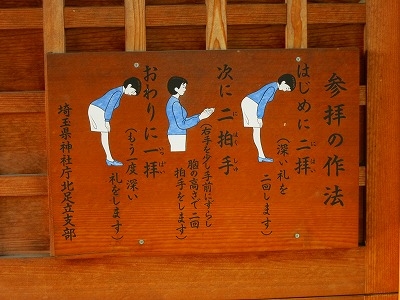 参拝の作法
はじめに二拝
(深い礼を
二回します)
次に二拍手
(右手を少し手前にずらし
胸の高さで二回
拍手をします)
おわりに一拝
(もう一度深い
礼をします)
埼玉県神社庁北足立支部